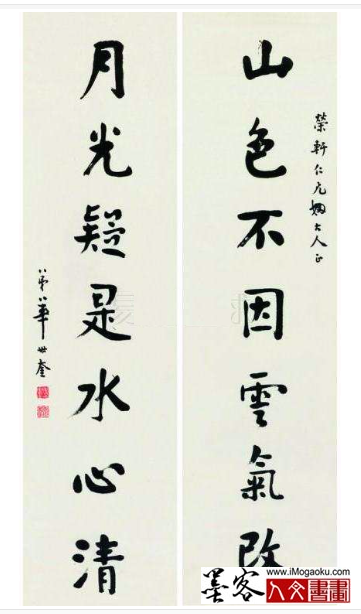 榮軒仁兄姻大人正
山色不因雲氣改
月光疑是水心清
弟華世奎
www.iMogaoku.com
墨客
人文書畫